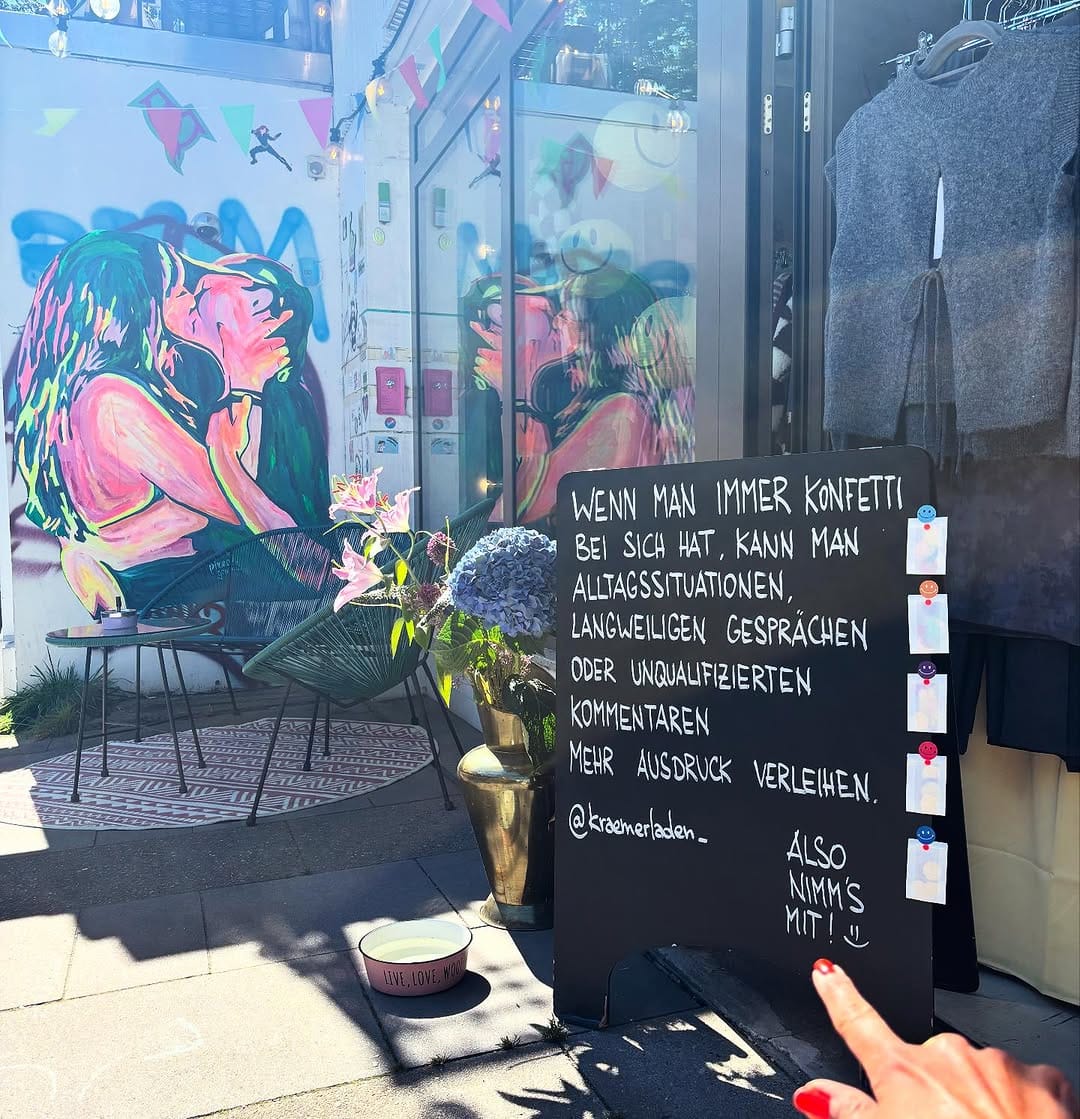 WENN MAN IMMER KONFETTI
BEI SICH HAT, KANN MAN
ALLTAGSSITUATIONEN,
LANGWEILIGEN GESPRÄCHEN
ODER UNQUALIFIZIERTEN
KOMMENTAREN
MEHR AUSDRUCK VERLEIHEN.
@kraemerladen_
ALSO
NIMM'S
MIT!
LIVE, LOVE,